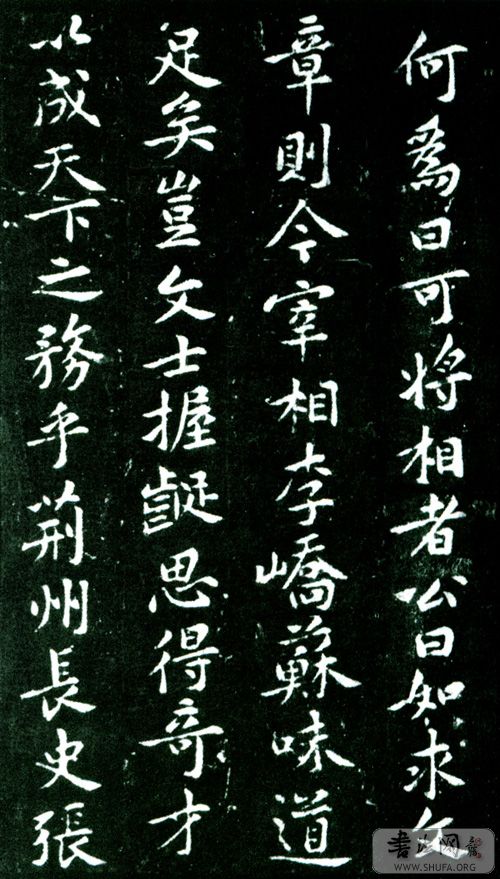 何為曰可將相者公曰如求文
章則今宰相李嶠蘇味道
足矣豈文士握齪思得奇才
以成天下之務乎荊州長史張
书法网
WWW.SHUFA.ORG